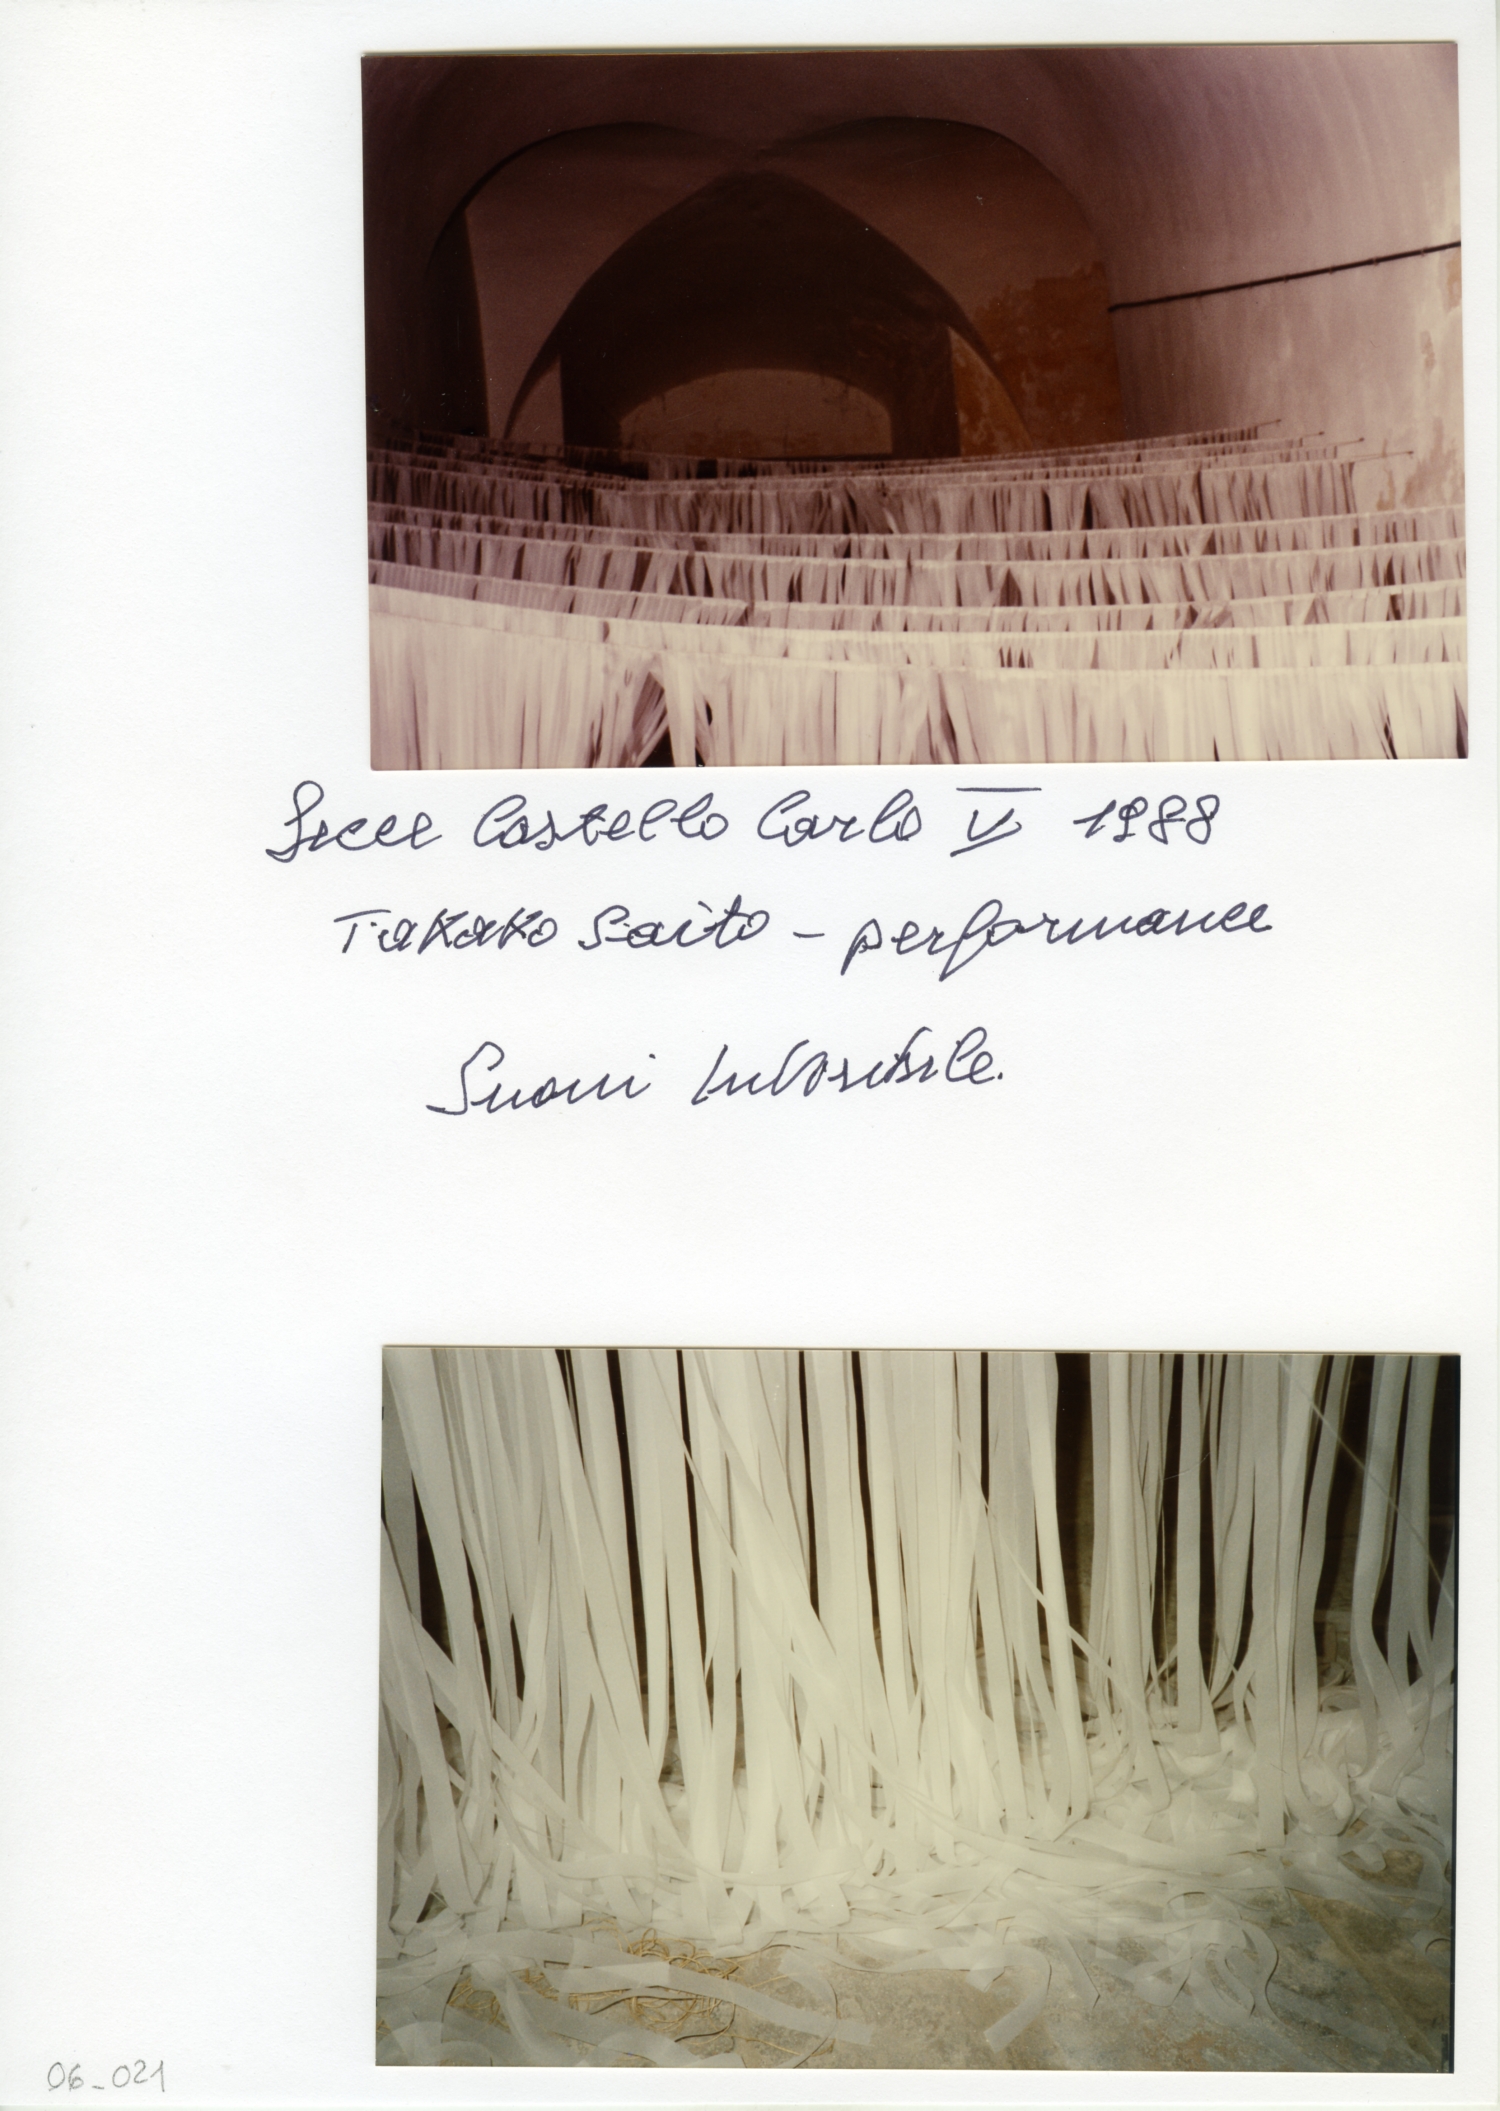 Lecce Castello Carlo V 1988
Takako Saito - performance
Suoni Invisibile.
06_021